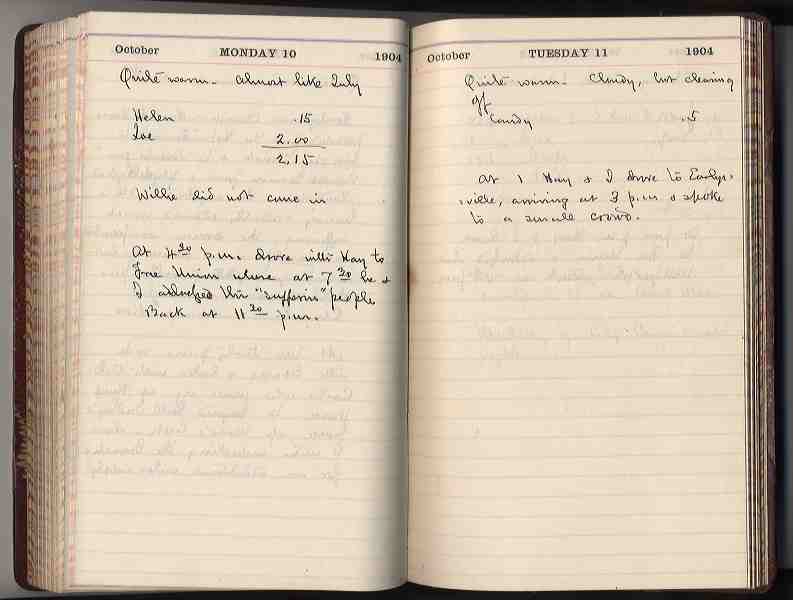 October MONDAY 10 1904
Quite warm - almost like July
Helen .15
Zoe 2.00
2.15
Willie did not come in
At 4 30 p.m. drove with Hay to
Free Union where at 7 30 he &
I addressed this "sufferin" people
Back at 11 30 p.m.
October TUESDAY 11 1904
Quite warm - Cloudy, but clearing
off
Candy .5
At 1 Hay & I drove to Earlys-
ville, arriving at 3 p.m & spoke
to a small crowd.